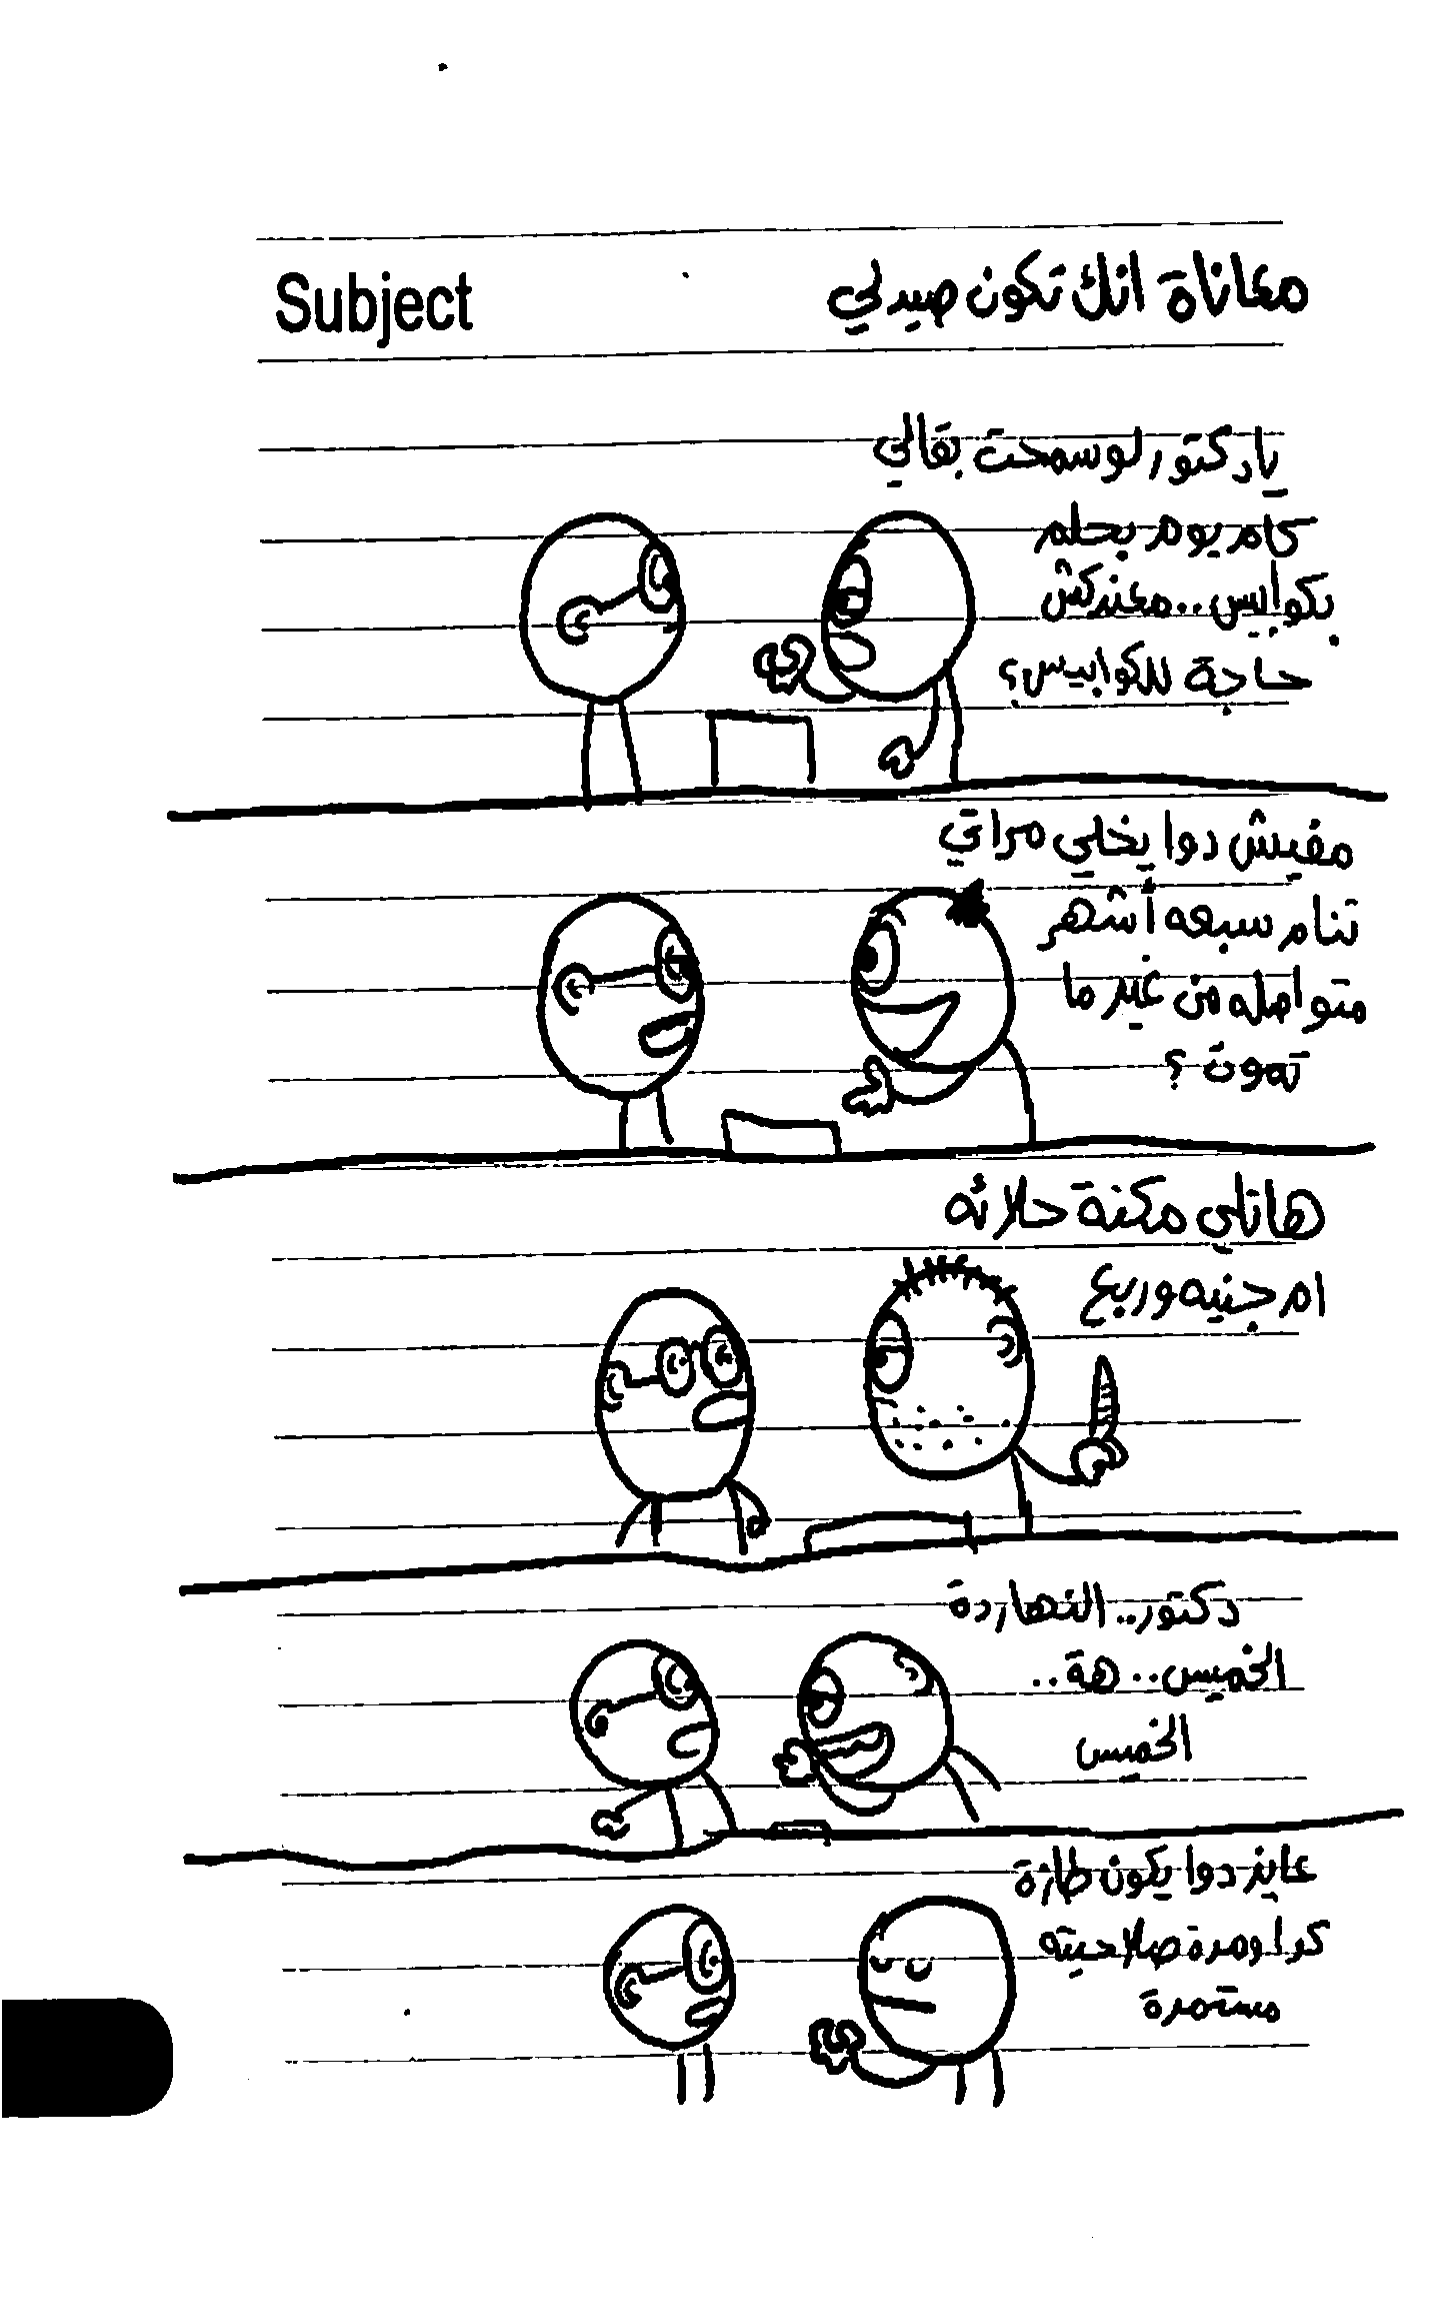 Subject
معاناة انك تكون صيدلي
يا دكتور لو سمحت بقالي
كام يوم بحلم
بكوابيس.. معندكش
حاجة للكوابيس؟
مفيش دوا يخلي مراتي
تنام سبعه أشهر
متواصله من غير ما
تموت ؟
هاتلي مكنة حلاثه
ام جنيه وربع
دكتور.. النهاردة
الخميس.. هة..
الخميس
عايز دوا يكون طازة
كدا ومدة صلاحيته
مستمرة